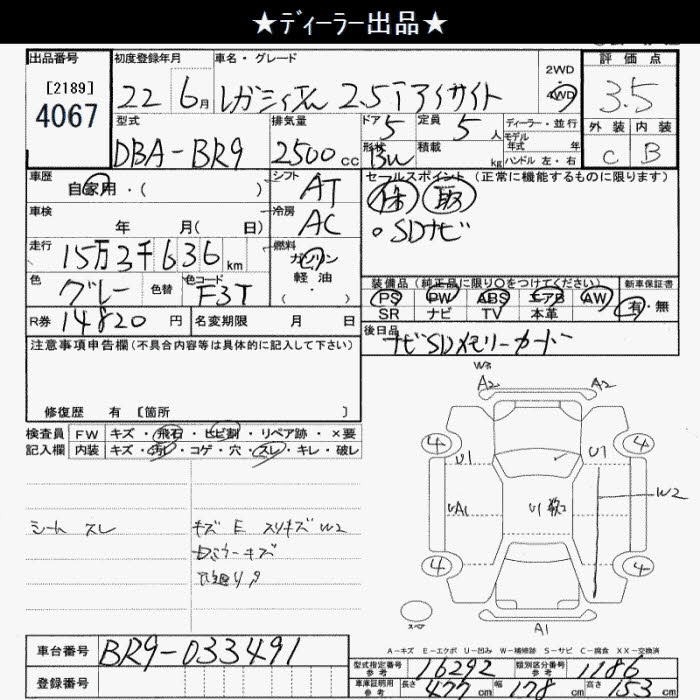 ★ディーラー出品★
出品番号 初度登録年月 車名・グレード 2WD 評価点
[2189] 4067 22 6月 レガシィB4 2.5i アイサイト 4WD 3.5
型式 排気量 ドア 5 定員 5人 ディーラー・並行 外装 内装
DBA-BR9 2500cc 形状 BW 積載 kg モデル年式 年 ハンドル 左・右 C B
車歴 シフト セールスポイント(正常に機能するものに限ります)
自家用・( ) AT 保 取
車検 冷房 ・SDナビ
年 月( 日) AC
走行 燃料
15万3千636km ガソリン 軽油 ・( ・ )
色 色替 色コード 装備品(純正品に限り○をつけてください) 新車保証書
グレー F3T PS PW ABS エアB AW 有・無
SR ナビ TV 本革
R券 14820円 名変期限 月 日 後日品
ナビSDメモリーカード
注意事項申告欄(不具合内容等は具体的に記入して下さい)
修復歴 有 [箇所 ]
検査員 FW キズ・飛石・ヒビ割・リペア跡・×要
記入欄 内装 キズ・汚れ・コゲ・穴・スレ・キレ・破レ
W3
A2 A2
4 4
U1 U1
UA1 U1 W2
シート スレ キズ E スリキズ W2
キズ
4 4
スペア
A1
A-キズ E-エクボ U-凹み W-補修跡 S-サビ C-腐食 XX-交換済
車台番号 BR9-033491
型式指定番号 参考 16292 類別区分番号 参考 1186
登録番号 車庫証明用 参考 長さ 477cm 幅 178cm 高さ 153cm